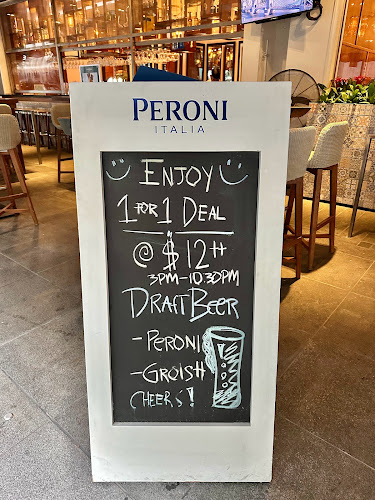 PERONI
ITALIA
ENJOY
1 FOR 1 DEAL
@ $12++
3PM-10.30PM
DRAFT BEER
- PERONI
- GROLSH
CHEERS!